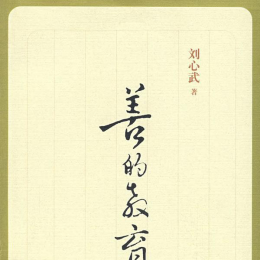 刘心武 著
善的教育